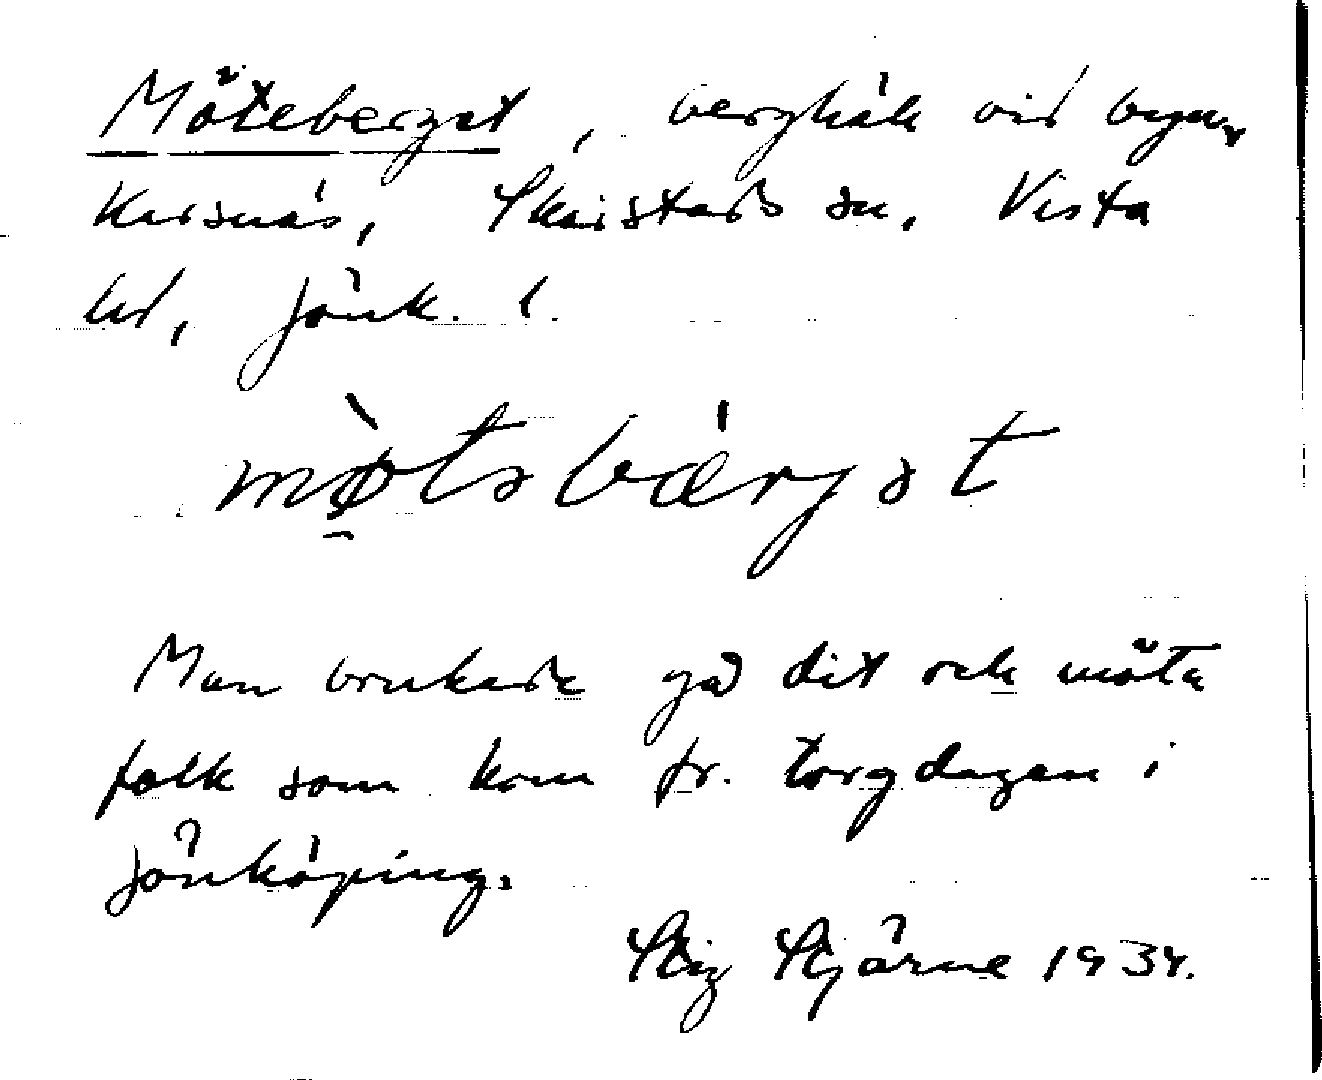 Möteberget, berghäll vid byn
Kursnäs, Skärstads sn, Vista
hd, Jönk. l.
mø̀təbærgət
Man brukade gå dit och möta
folk som kom fr. torgdagen i
Jönköping.
Stig Stjärne 1934.